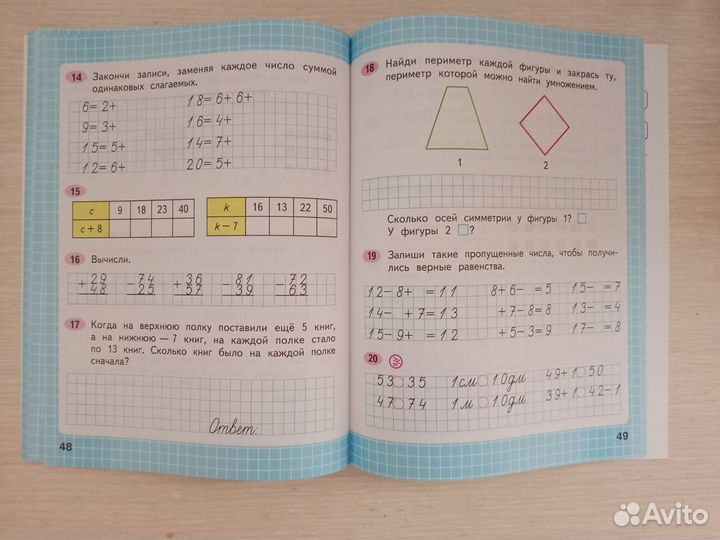 14 Закончи записи, заменяя каждое число суммой
одинаковых слагаемых.
6=2+ 18=6+6+
9=3+ 16=4+
15=5+ 14=7+
12=6+ 20=5+
15
c 9 18 23 40
c+8
k 16 13 22 50
k−7
16 Вычисли.
+29 −74 +36 −81 −72
48 25 57 39 63
17 Когда на верхнюю полку поставили ещё 5 книг,
а на нижнюю — 7 книг, на каждой полке стало
по 13 книг. Сколько книг было на каждой полке
сначала?
Ответ:
48
18 Найди периметр каждой фигуры и закрась ту,
периметр которой можно найти умножением.
1 2
Сколько осей симметрии у фигуры 1?
У фигуры 2 ?
19 Запиши такие пропущенные числа, чтобы получи-
лись верные равенства.
12−8+ =11 8+6− =5 15− =7
14− +7=13 +7−8=8 13− =4
15−9+ =12 +5−3=9 17− =8
20
53 35 1см 10дм 49+1 50
47 74 1м 10дм 39+1 42−1
49
Avito